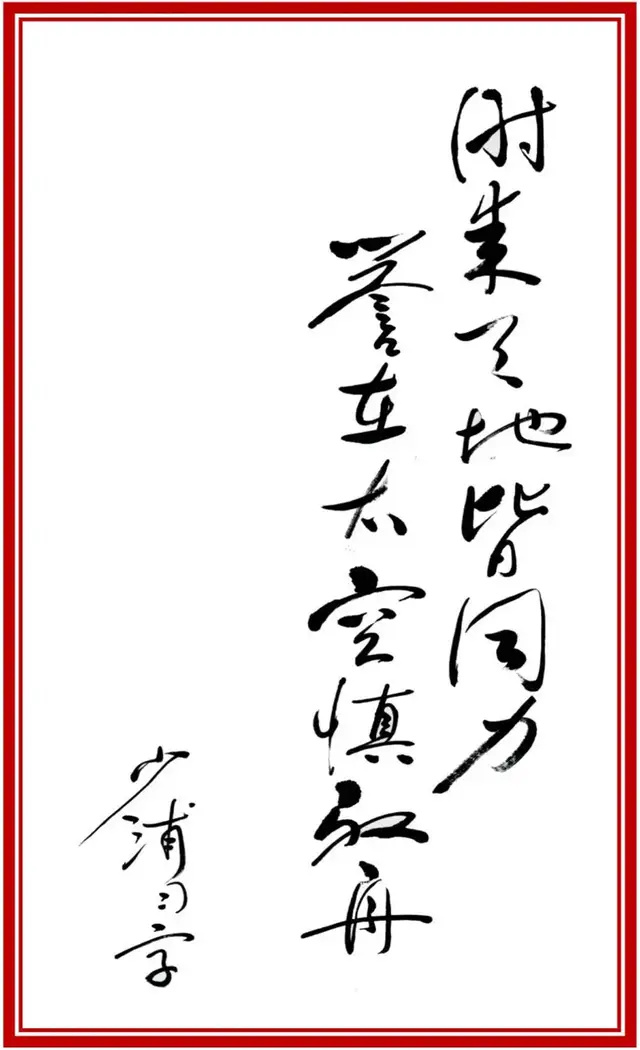 时来天地皆同力
誉在太空慎取舟
少浦习字